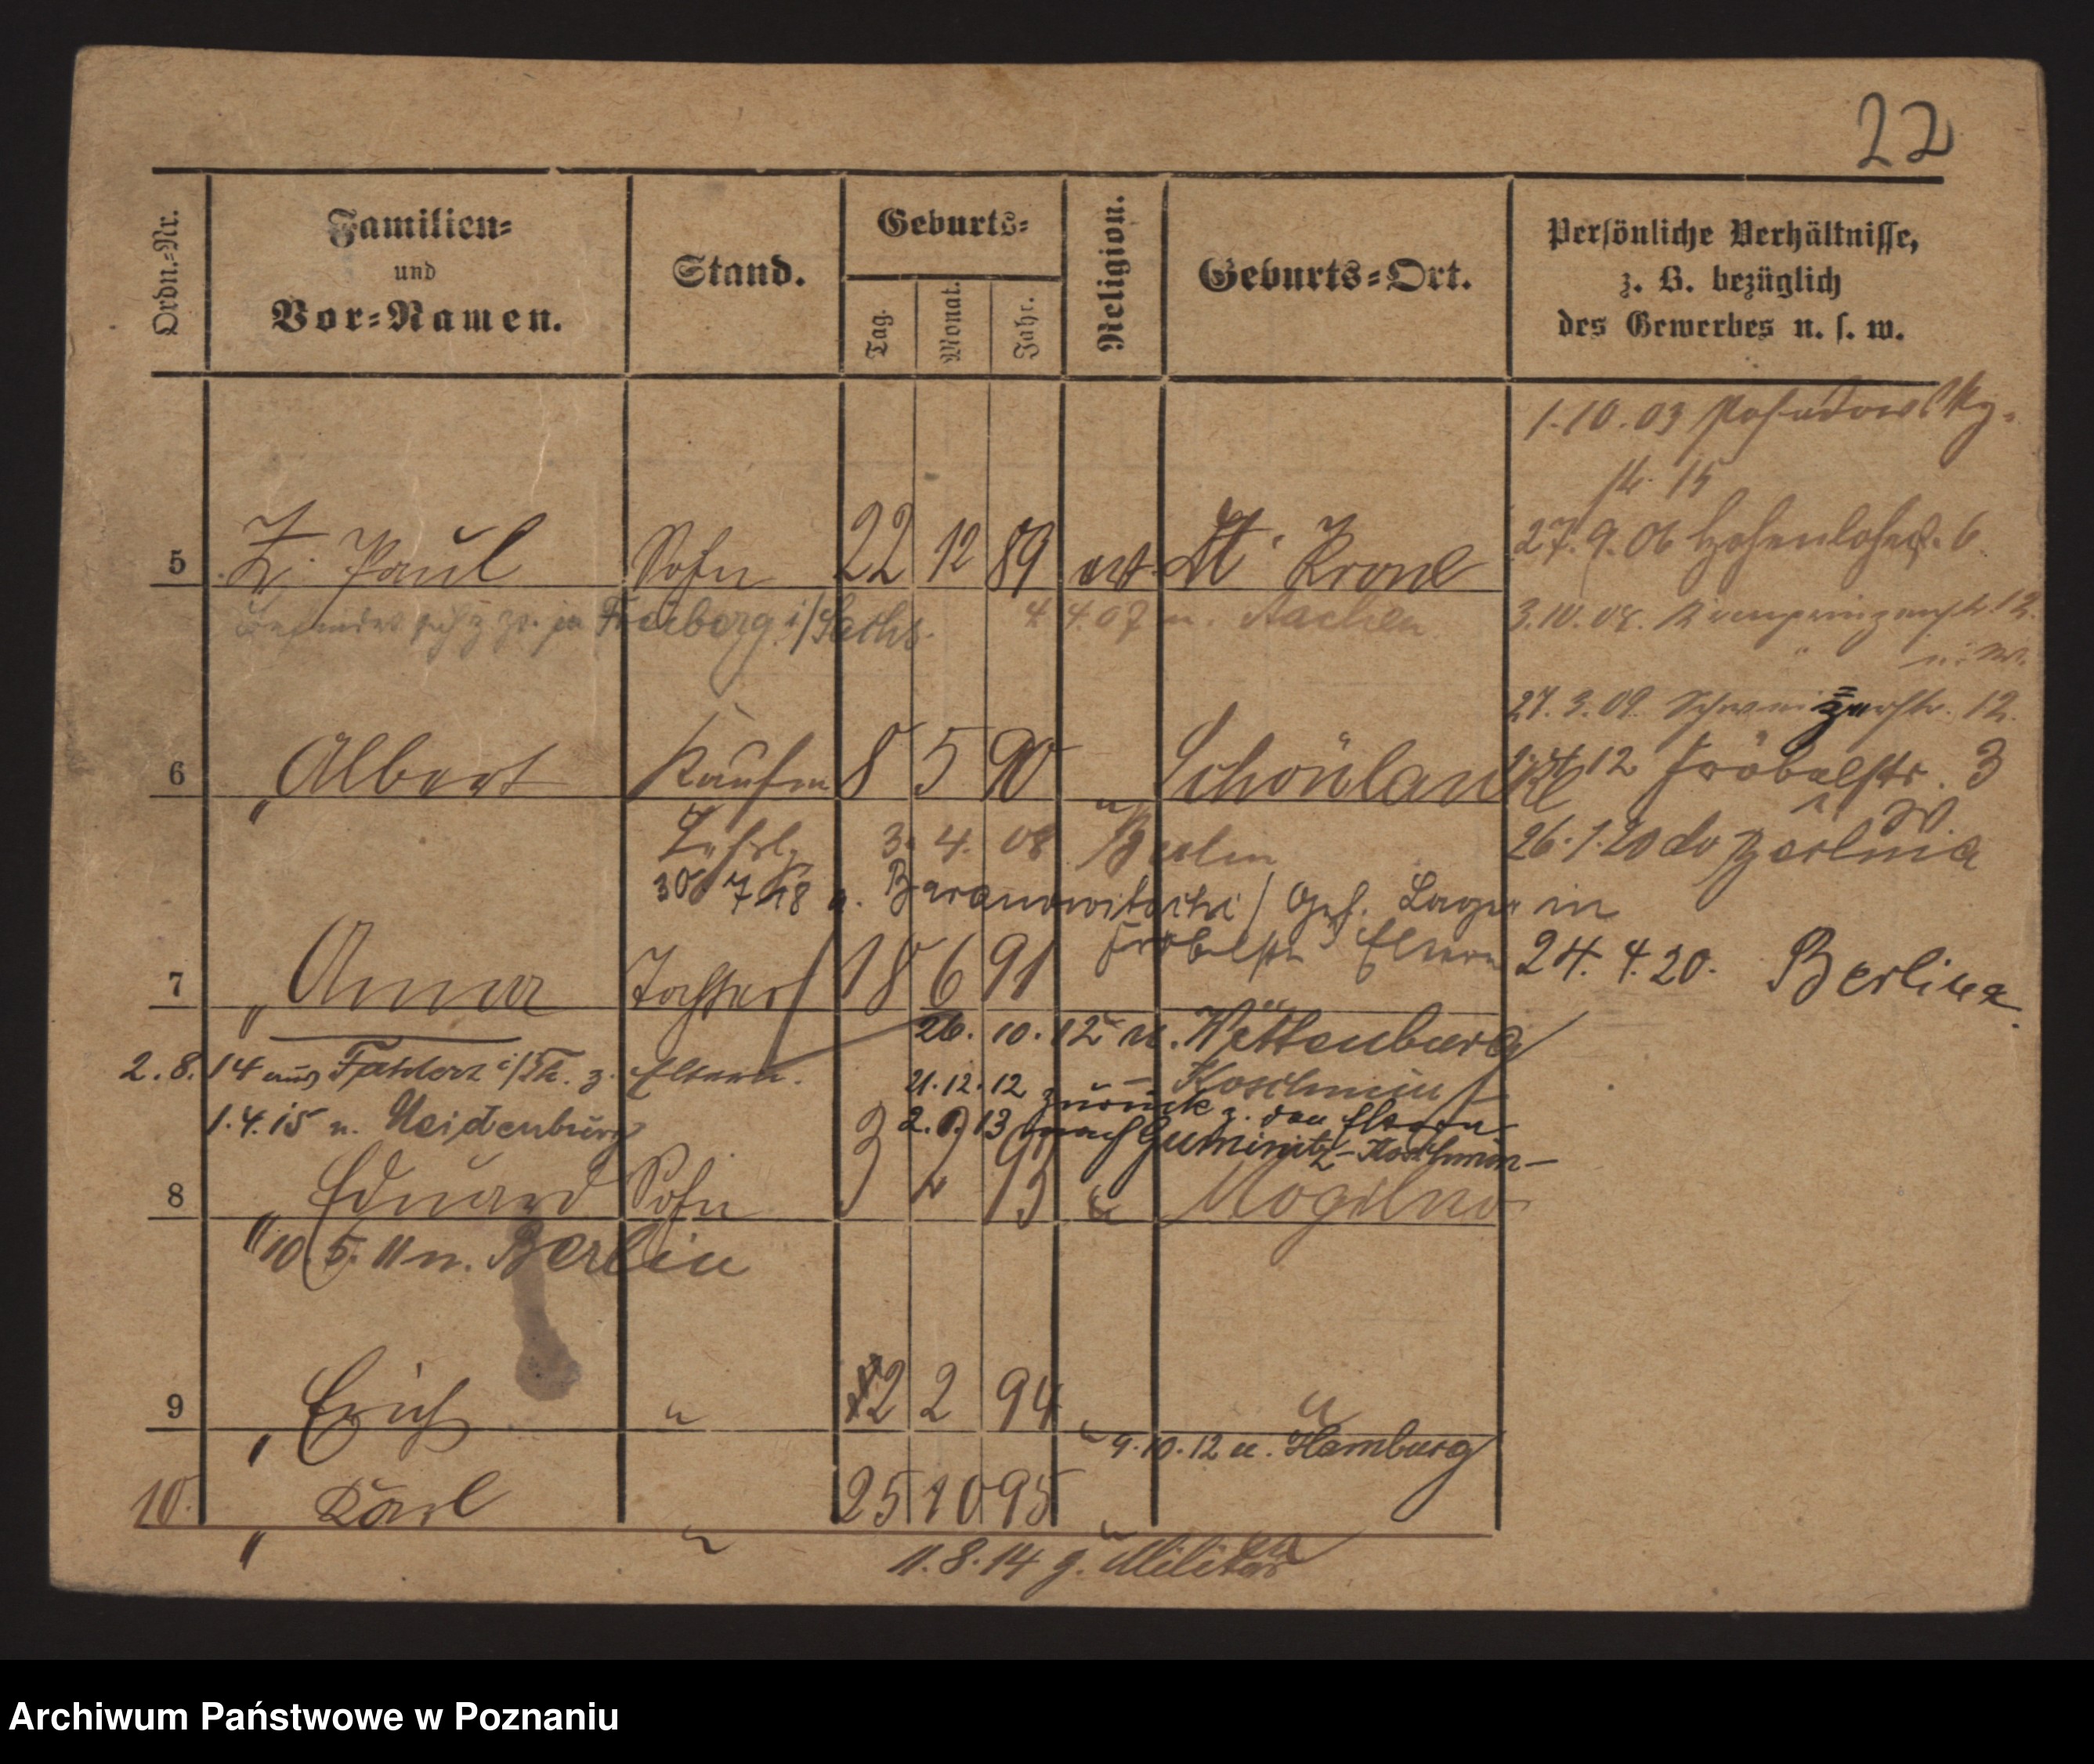 22
Ordn.-Nr.
Familien-
und
Vor-Namen.
Stand.
Geburts-
Tag.
Monat.
Jahr.
Religion.
Geburts-Ort.
Persönliche Verhältnisse,
z. B. bezüglich
des Gewerbes u. s. w.
1.10.03
15
27.9.06 Hohenlohestr. 6
5 Z. Paul Sohn 22 12 89 Dt. Krone
in Freiberg i/Sachs.
4 4.07 n. Aachen
3.10.08. Kronprinzenstr. 12.
27.3.09. Schweizerstr. 12.
6 " Albert Kaufm 8 5 90 " Schönlanke
12 Fröbelstr. 3
Lehrl. 3. 4. 08 Berlin
26.1.20
30. 7 18 Baranowitschi / Gef. Lager in
Fröbelstr Eltern
7 " Anna Tochter 18 6 91
24. 4. 20. Berlin
26. 10. 12 n. Wettenburg
2. 8. 14 aus z. Eltern.
21.12.12 Koschmin
zurück z. den Eltern
1.4.15 n. Neidenburg
2. 13 nach Guminitz-Koschmin-
8 " Eduard Sohn 3 93 " Mogilno
" 10. 5. 11 n. Berlin
9 " Erich " 2 2 94 " "
9.10.12 n. Hamburg
10. " Karl " 25 10 95 " "
11.8.14 z. Militär
Archiwum Państwowe w Poznaniu